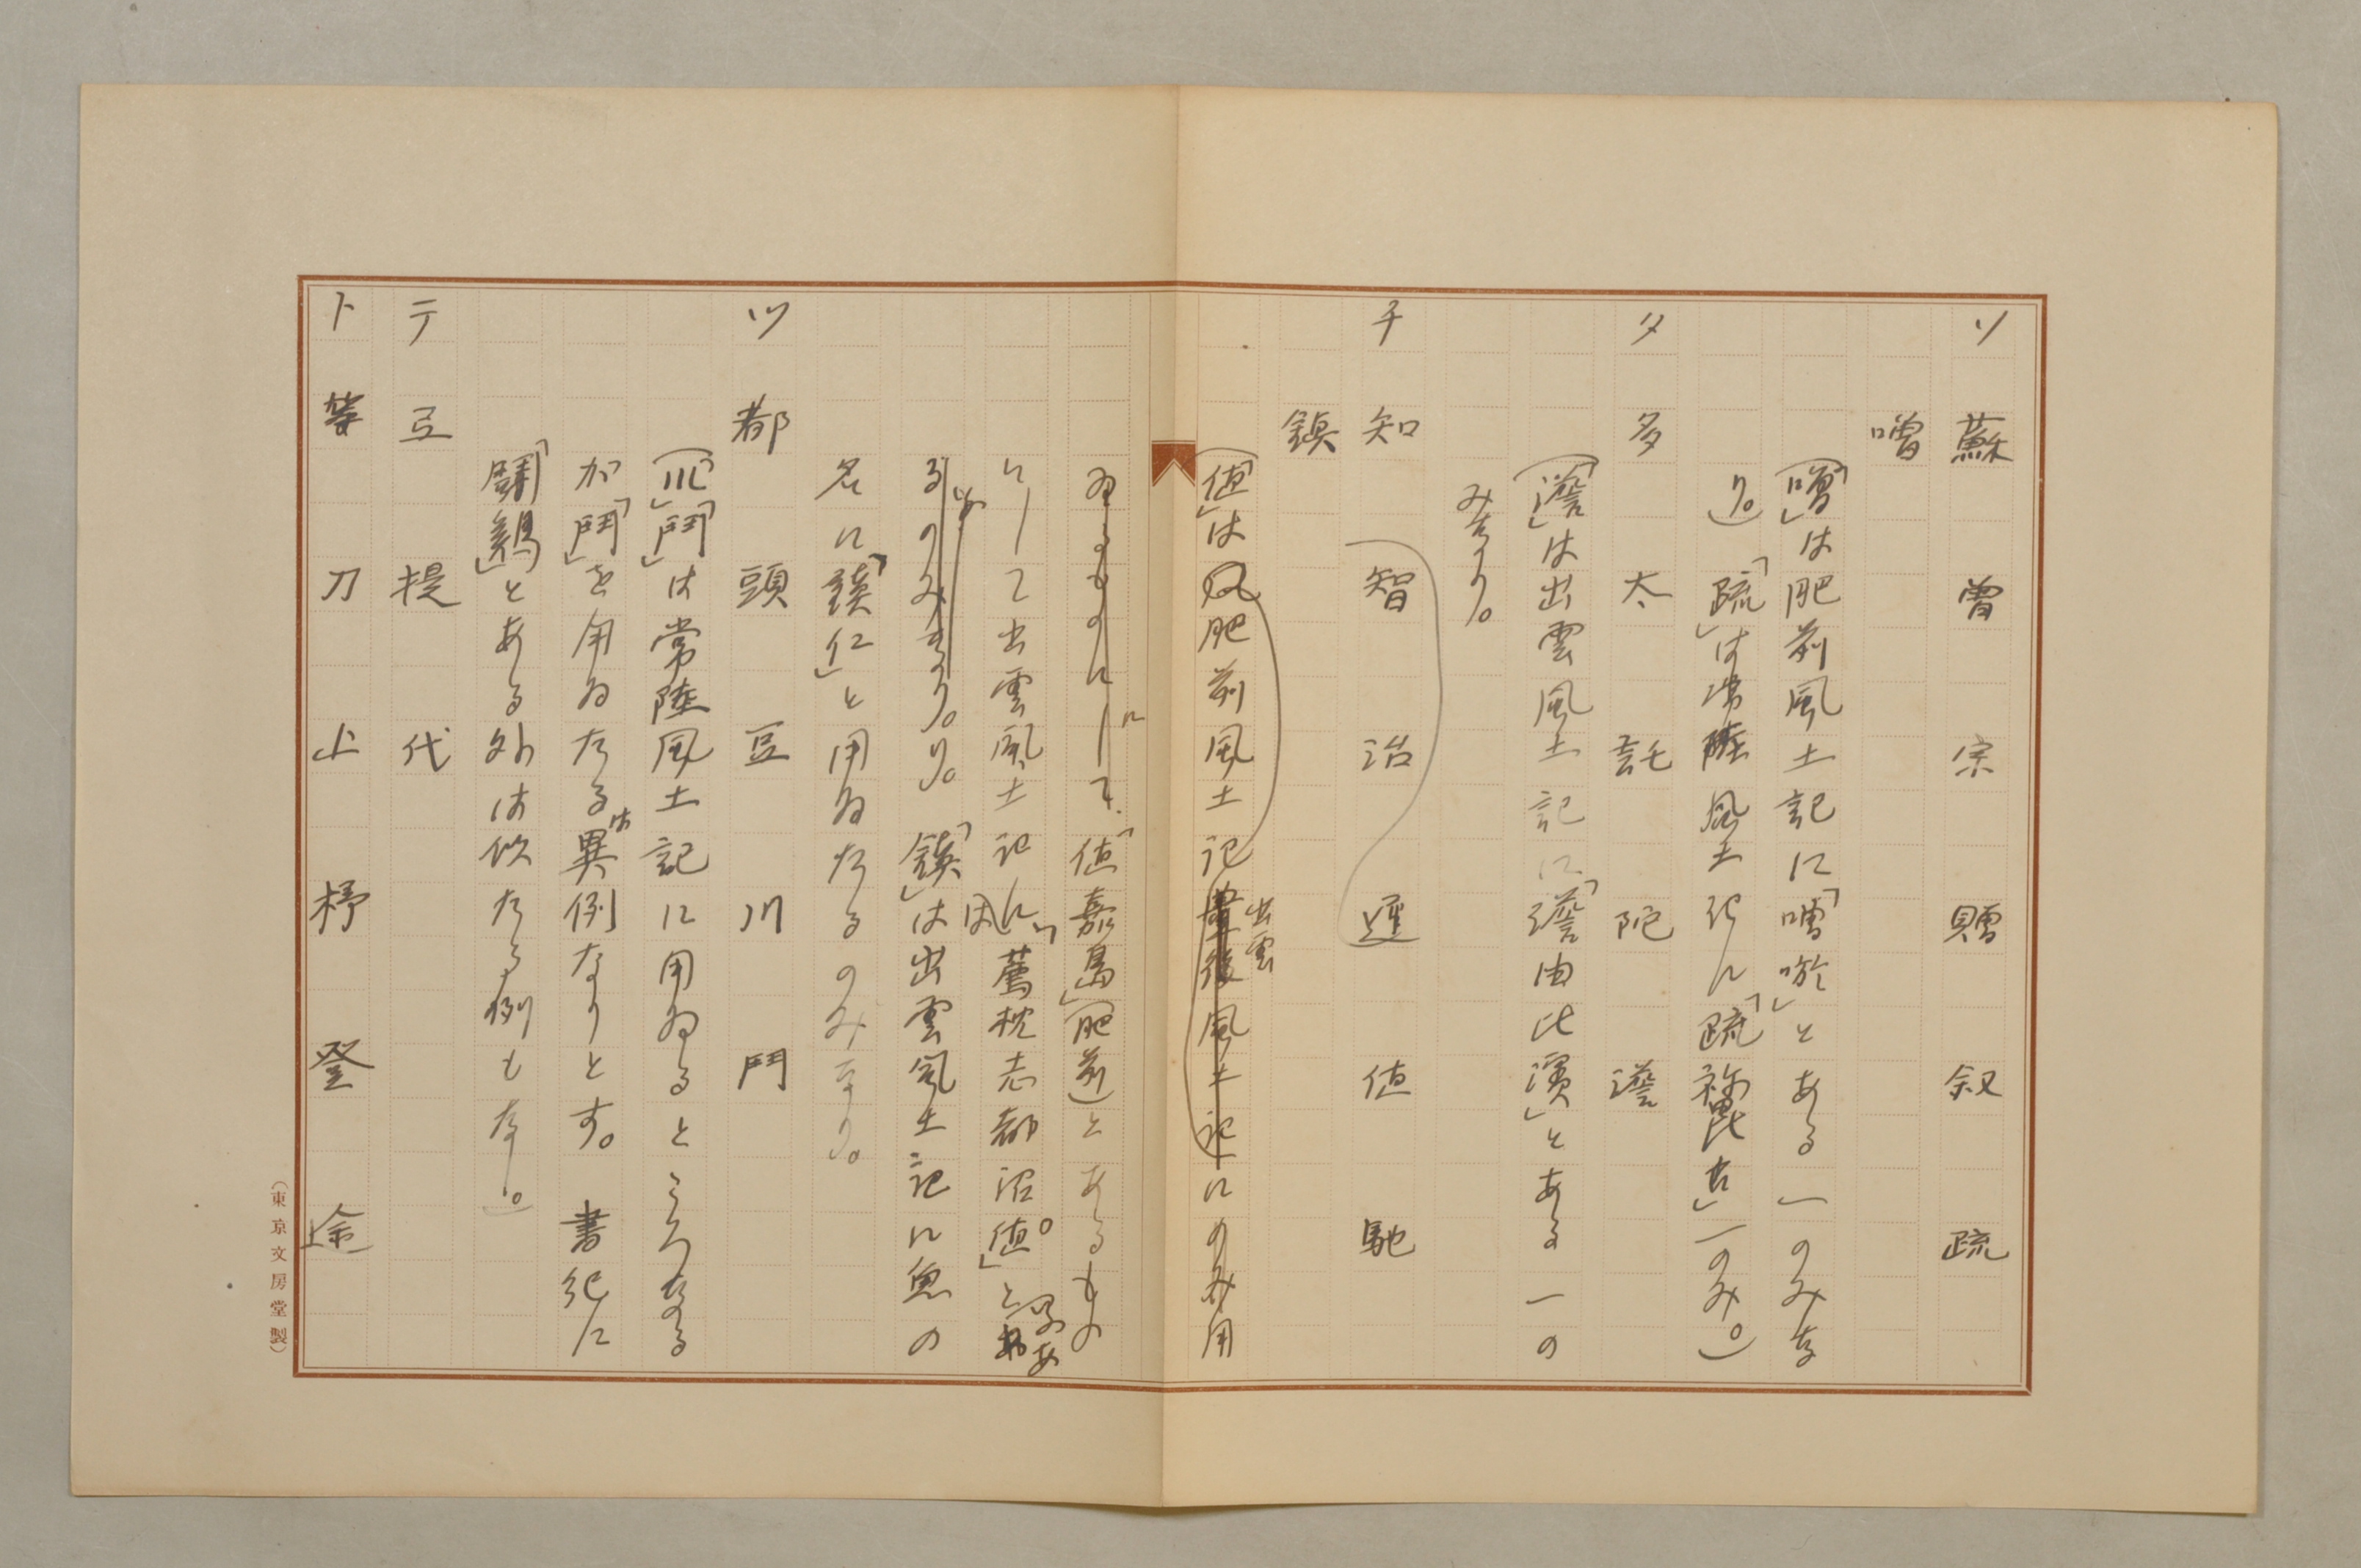 ソ 蘇 曽 宗 贈 叙 疏
噌
(「噌」は肥前風土記に「噌唹」とある一のみな
り。)「疏」は常陸風土記に「疏禰毘古」一のみ。)
タ 多 太 託 陀 澁
(「澁」は出雲風土記に「澁由比濱」とある一の
みなり。
チ 知 智 治 遲 値 馳
鎮
(「値」は肥前風土記出雲風土記にのみ用
ゐるものにして「値嘉島」(肥前)とあるもの
にして出雲風土記に「薦枕志都沼値」と
るのみなり。り。「鎮」は出雲風土記に魚の
名に「鎮仁」と用ゐたるのみなり。
ツ 都 頭 豆 川 鬥
(「川」「鬥」は常陸風土記に用ゐるところなる
が「鬥」を用ゐたるは異例なりとす。書紀に
「鬪鷄」とある外は似たる例もなし。)
テ 弖 提 代
ト 等 刀 止 杼 登 途
(東京文房堂製)